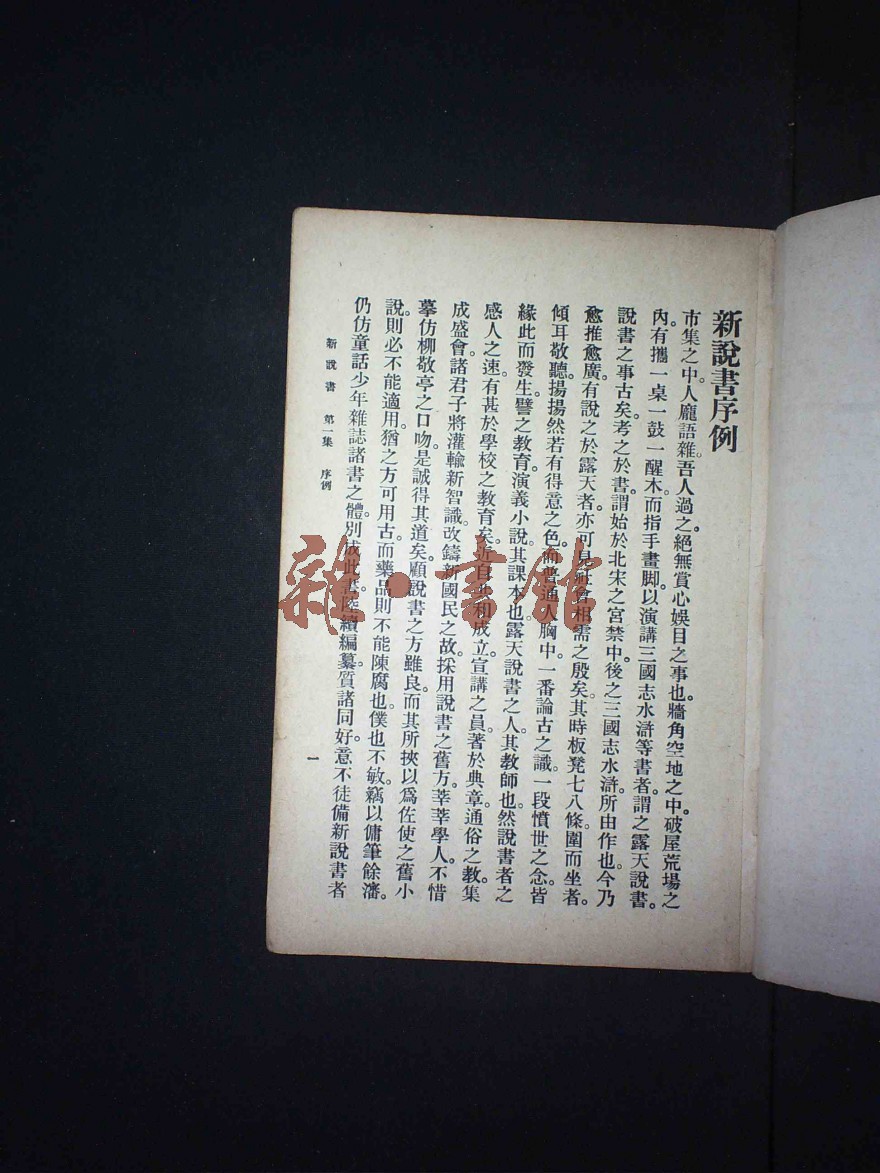 新說書序例
市集之中。人龐語雜。吾人過之。絕無賞心娛目之事也。牆角空地之中。破屋荒場之
內。有攜一桌一鼓一醒木。而指手畫脚。以演講三國志水滸等書者。謂之露天說書。
說書之事古矣。考之於書。謂始於北宋之宮禁中。後之三國志水滸。所由作也。今乃
愈推愈廣。有說之於露天者。亦可見社會相需之殷矣。其時板凳七八條。圍而坐者。
傾耳敬聽。揚揚然若有得意之色。而普通人胸中。一番論古之識。一段憤世之念。皆
緣此而發生。譬之教育。演義小說。其課本也。露天說書之人。其教師也。然說書者之
感人之速。有甚於學校之教育矣。近自共和成立。宣講之員。著於典章。通俗之教。集
成盛會。諸君子將灌輸新智識。改鑄新國民之故。採用說書之舊方。莘莘學人。不惜
摹仿柳敬亭之口吻。是誠得其道矣。顧說書之方雖良。而其所挾以爲佐使之舊小
說。則必不能適用。猶之方可用古。而藥品則不能陳腐也。僕也不敏。竊以傭筆餘瀋。
仍仿童話少年雜誌諸書之體。別成此書。陸續編纂。質諸同好。意不徒備新說書者
新說書 第一集 序例
一
雜·書館